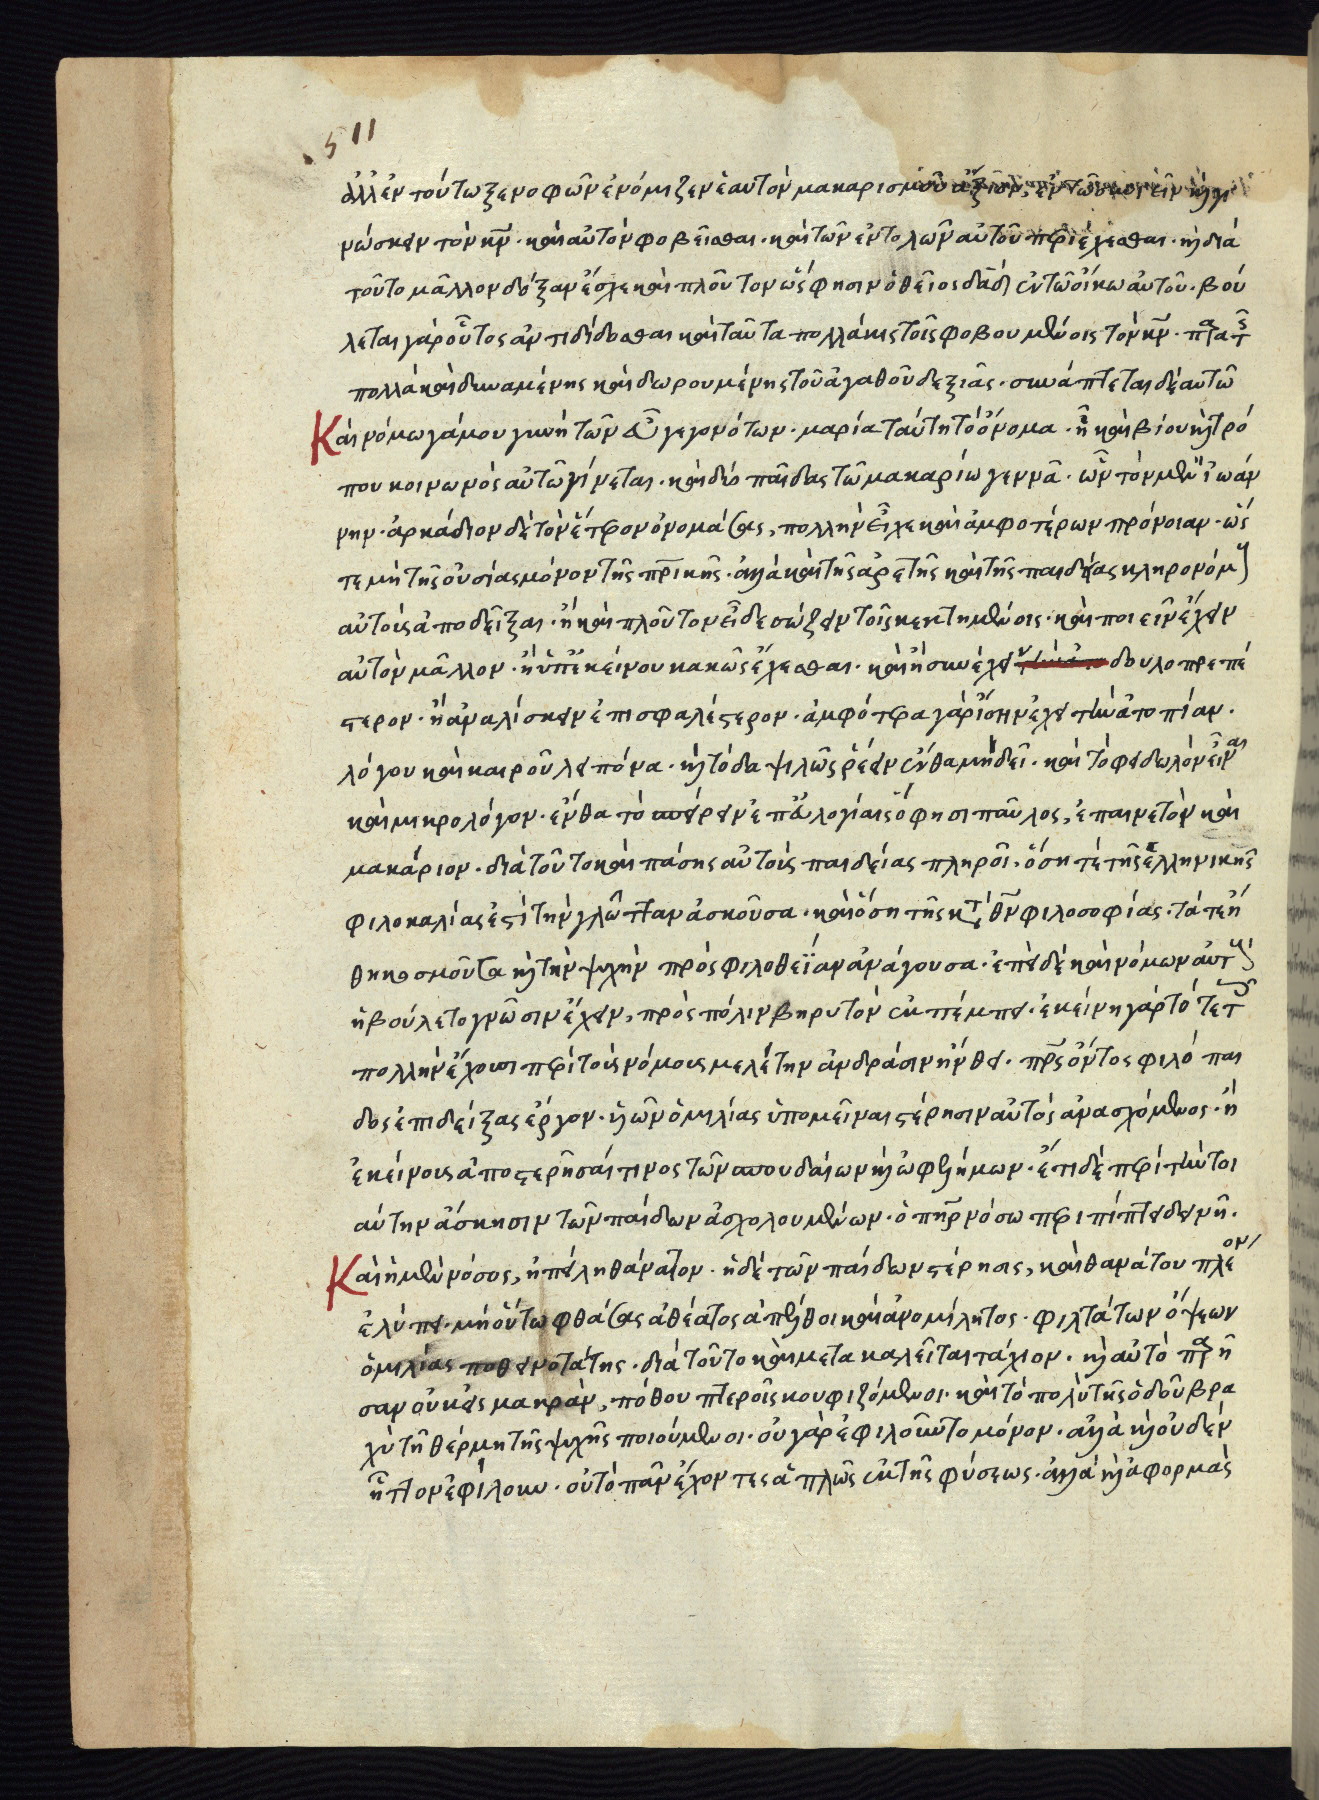 511
ἀλλ' ἐν τούτω ξενοφῶν ἐνόμιζεν ἑαυτὸν μακαρισμοῦ ἄξιον, ἐν τῶ
νώσκειν τὸν κν̅· καὶ αὐτὸν φοβεῖσθαι· καὶ τῶν ἐντολῶν αὐτοῦ περιέχεσθαι· κ διὰ
τοῦτο μᾶλλον δόξαν ἔσχε καὶ πλοῦτον ὥς φησιν ὁ θεῖος δᾱδ ἐν τῶ οἴκω αὐτοῦ· βού
λεται γὰρ οὗτος ἀντιδίδοσθαι καὶ ταῦτα πολλάκις τοῖς φοβουμένοις τὸν κν̅·
πολλὰ καὶ δυναμένης καὶ δωρουμένης τοῦ ἀγαθοῦ δεξιᾶς· συνάπτεται δὲ αυτῶ
Καὶ νόμω γάμου γυνὴ τῶν εὖ γεγονότων· μαρία ταύτη τὸ ὄνομα· ἣ καὶ βίου κ τρό
που κοινωνὸς αὐτῶ γίνεται· καὶ δύο παῖδας τῶ μακαρίω γεννᾶ· ὧν τὸν μὲν ἰωάν
νην· ἀρκάδιον δὲ τὸν ἕτερον ὀνομάσας, πολλὴν εἶχε καὶ ἀμφοτέρων πρόνοιαν· ὥς
τε μὴ τῆς οὐσίας μόνον τῆς πρ̅ικῆς· ἀλλὰ καὶ τῆς ἀρετῆς καὶ τῆς παιδείας κληρονόμους
αὐτοὺς ἀποδεῖξαι· ἢ καὶ πλοῦτον εἶδε σώζειν τοῖς κεκτημένοις· καὶ ποιεῖν ἔχειν
αὐτὸν μᾶλλον· ἢ ὑπ' ἐκείνου κακῶς ἔχεσθαι· καὶ ἢ συνέχειν δουλοπρεπέ
στερον· ἢ ἀναλίσκειν ἐπισφαλέστερον· ἀμφότερα γὰρ ἴσην ἔχει τὴν ἀτοπίαν·
λόγου καὶ καιροῦ λειπόνα· κ τὸ δαψιλῶς ῥέειν ἔνθα μὴ δεῖ· καὶ τὸ φειδωλὸν εἶναι
καὶ μικρολόγον· ἔνθα τὸ σπείρειν ἐπ' εὐλογίαις ὅ φησι παῦλος, ἐπαινετὸν καὶ
μακάριον· διὰ τοῦτο καὶ πάσης αὐτοὺς παιδείας πληροῖ· ὅση τὲ τῆς ἑλληνικῆς
φιλοκαλίας ἐστὶ τὴν γλῶτταν ἀσκοῦσα· καὶ ὅση τῆς κτ̀ θν̅ φιλοσοφίας· τά τε ἤ
θη κοσμοῦσα κ τὴν ψυχὴν πρὸς φιλοθεΐαν ἀνάγουσα· ἐπεὶ δὲ καὶ νόμων αὐτοὺς
ἠβούλετο γνῶσιν ἔχειν, πρὸς πόλιν βηρυτὸν ἐκπέμπει· ἐκείνη γὰρ τότε τοῖς
πολλὴν ἔχουσι περὶ τοὺς νόμους μελέτην ἀνδράσιν ἤνθει· πρ̅ς ὄντος φιλόπαι
δος ἐπιδείξας ἔργον· ἡ ὧν ὁμιλίας ὑπομεῖναι στέρησιν αὐτὸς ἀνασχόμενος· ἢ
ἐκείνους ἀποστερῆσαί τινος τῶν σπουδαίων κ ὠφελίμων· ἔτι δὲ περὶ τὴν τοι
αύτην ἄσκησιν τῶν παίδων ἀσχολουμένων· ὁ πη̅ρ νόσω περιπίπτει δεινῆ·
Καὶ ἡ μὲν νόσος, ἠπείλη θάνατον· ἡ δὲ τῶν παίδων στέρησις, καὶ θανάτου πλέον
ἐλύπει· μὴ οὕτω φθάσας ἀθέατος ἀπέλθοι καὶ ἀνομίλητος· φιλτάτων ὄψεων
ὁμιλίας ποθεινοτάτης· διὰ τοῦτο καὶ μετακαλεῖται τάχιον· κ αὐτὸ παρῆ
σαν οὐκ εἰς μακρὰν, πόθου πτεροῖς κουφιζόμενοι· καὶ τὸ πολὺ τῆς ὁδοῦ βρα
χὺ τῆ θέρμη τῆς ψυχῆς ποιούμενοι· οὐ γὰρ ἐφιλοῦντο μόνον· ἀλλὰ κ οὐδὲν
ἧττον ἐφίλουν· οὐ τὸ πᾶν ἔχοντες ἁπλῶς ἐκ τῆς φύσεως· ἀλλὰ κ ἀφορμὰς